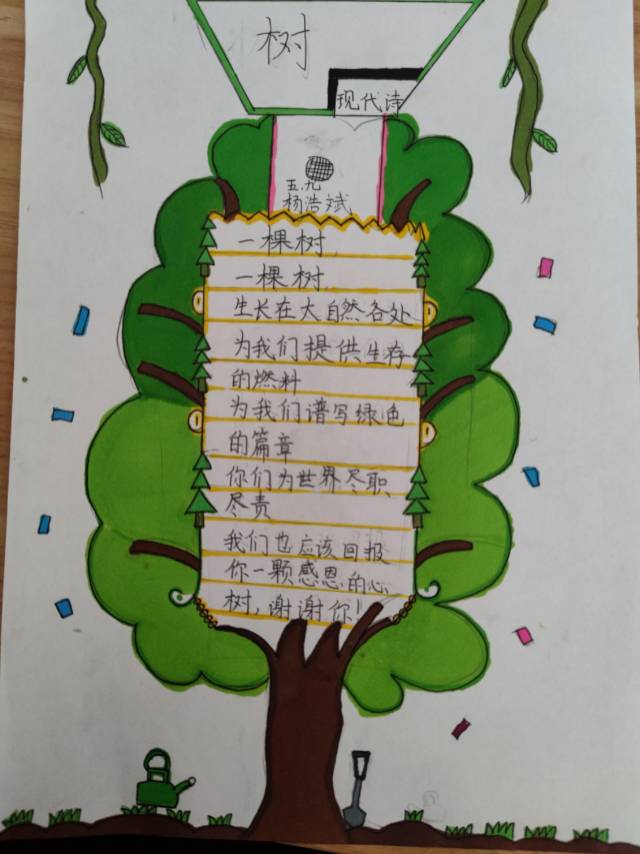 树
现代诗
五.九
杨浩斌
一棵树,
一棵树,
生长在大自然各处
为我们提供生存
的燃料
为我们谱写绿色
的篇章
你们为世界尽职、
尽责
我们也应该回报
你一颗感恩的心
树,谢谢你!